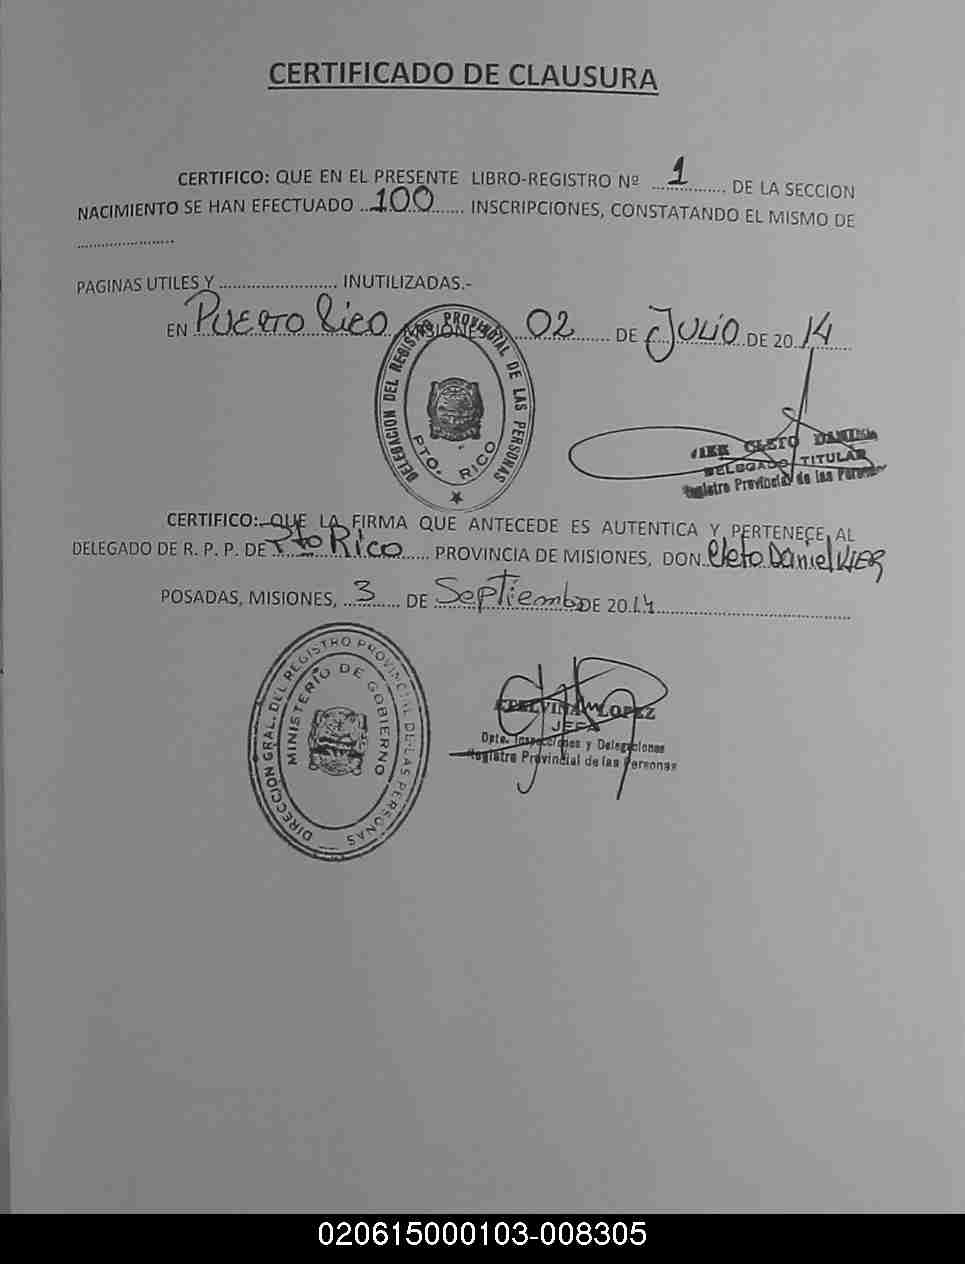 CERTIFICADO DE CLAUSURA
CERTIFICO: QUE EN EL PRESENTE LIBRO-REGISTRO Nº ...1... DE LA SECCION
NACIMIENTO SE HAN EFECTUADO ...100... INSCRIPCIONES, CONSTATANDO EL MISMO DE
........................
PAGINAS UTILES Y ............................. INUTILIZADAS.-
EN Puerto Rico MISIONES, 02 DE JULIO DE 2014
DELEGACION DEL REGISTRO PROVINCIAL DE LAS PERSONAS
PTO. RICO
KIER CLETO DANIEL
DELEGADO TITULAR
Registro Provincial de las Personas
CERTIFICO: QUE LA FIRMA QUE ANTECEDE ES AUTENTICA Y PERTENECE AL
DELEGADO DE R. P. P. DE Pto Rico PROVINCIA DE MISIONES, DON Cleto Daniel KIER
POSADAS, MISIONES, 3 DE Septiembre DE 2014
DIRECCION GRAL. DEL REGISTRO PROVINCIAL DE LAS PERSONAS
MINISTERIO DE GOBIERNO
ETELVINA LOPEZ
JEFA
Dpto. Inspecciones y Delegaciones
Registro Provincial de las Personas
020615000103-008305